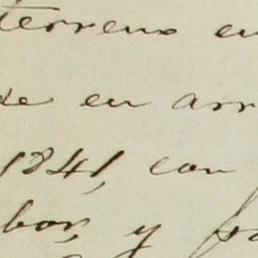 terreno en
de en arr
1841, con
bor, y pa